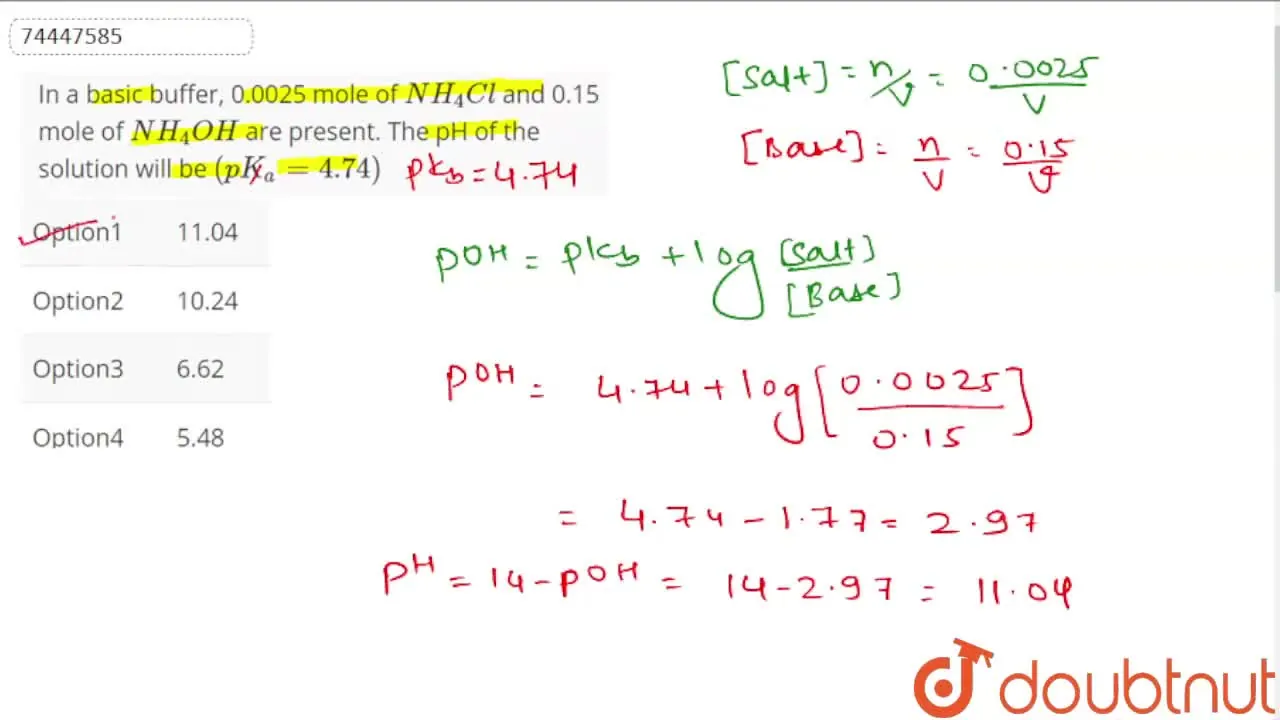 74447585
In a basic buffer, 0.0025 mole of NH₄Cl and 0.15
mole of NH₄OH are present. The pH of the
solution will be (pKₐ = 4.74) pKb = 4.74
Option1 11.04
Option2 10.24
Option3 6.62
Option4 5.48
[Salt] = n/V = 0.0025/V
[Base] = n/V = 0.15/V
pOH = pKb + log [Salt]/[Base]
pOH = 4.74 + log [0.0025/0.15]
= 4.74 - 1.77 = 2.97
pH = 14 - pOH = 14 - 2.97 = 11.04
doubtnut